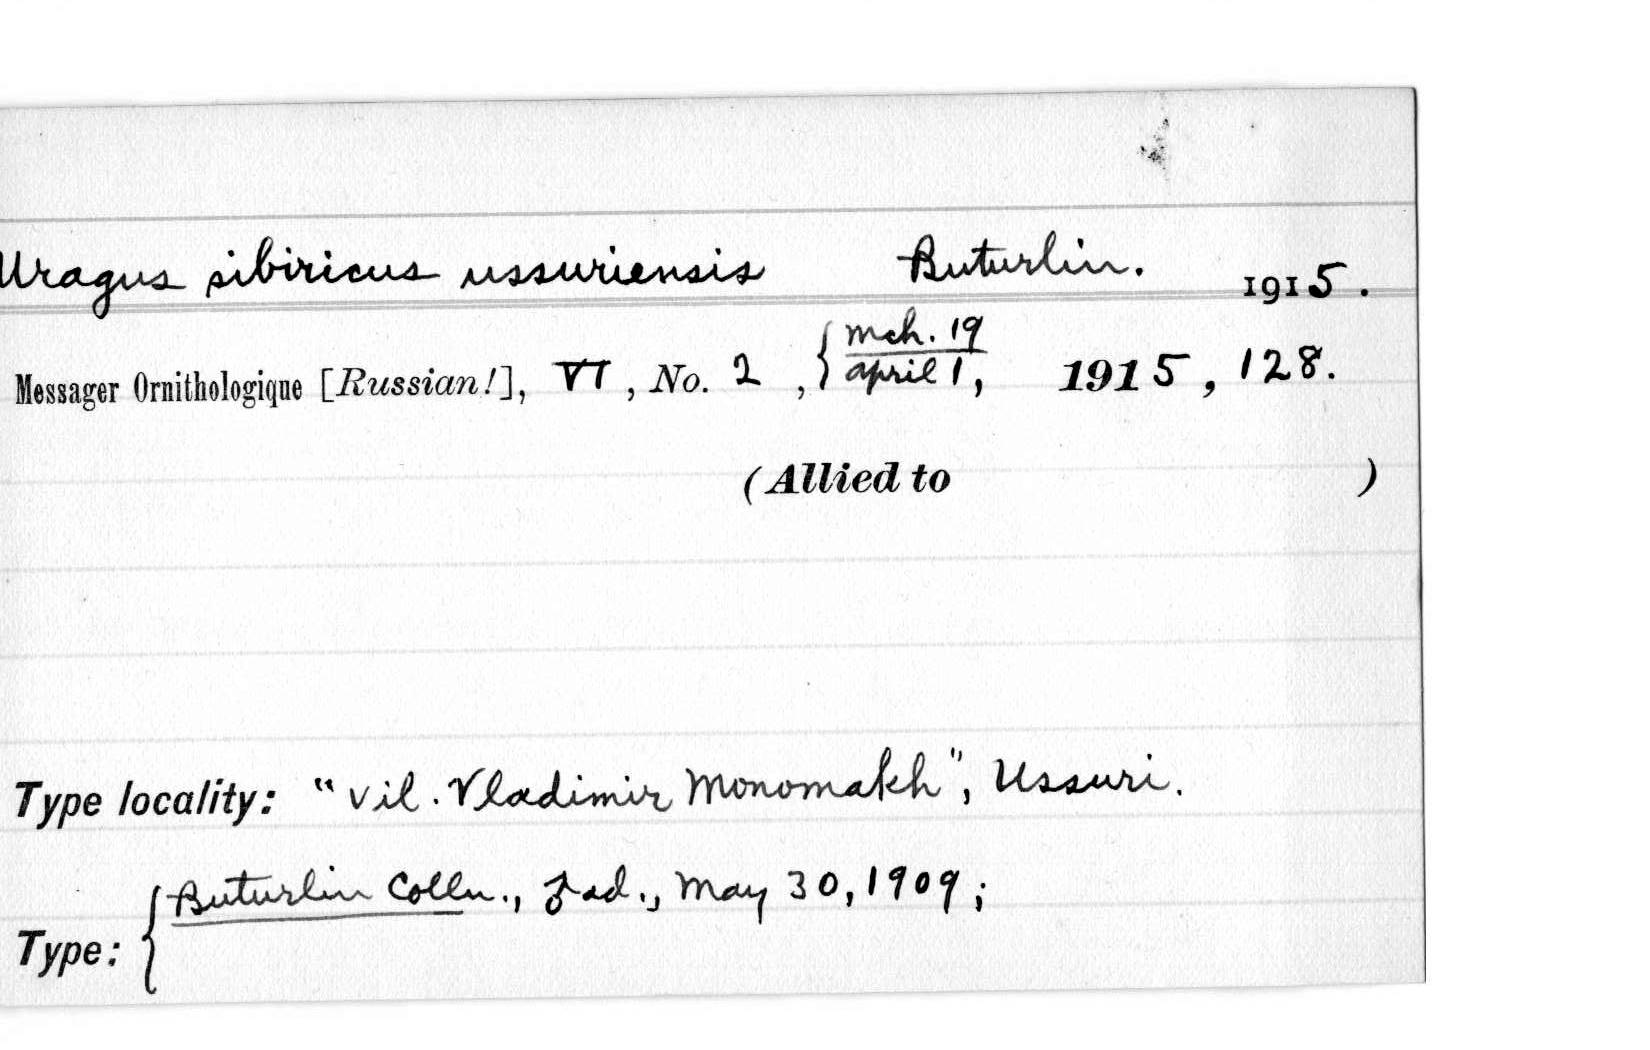 Uragus sibiricus ussuriensis Buturlin. 1915.
Messager Ornithologique [Russian!], VI, No. 2, { Mch. 19 / April 1, 1915, 128.
(Allied to )
Type locality: "Vil. Vladimir Monomakh", Ussuri.
Type: { Buturlin Colln., ♂ ad., May 30, 1909;